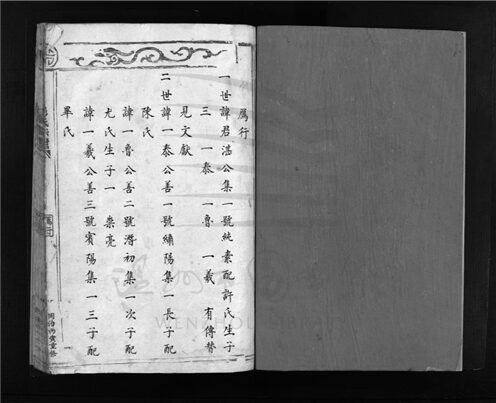 馬行
一世諱君湛公集一號純素配許氏生子
三 一泰 一魯 一義 有傳替
見文獻
二世諱一泰公善一號繡陽集一長子配
陳氏
諱一魯公善二號潛初集一次子配
尤氏生子一 榮亮
諱一義公善三號賓陽集一三子配
畢氏
同治丙寅重修